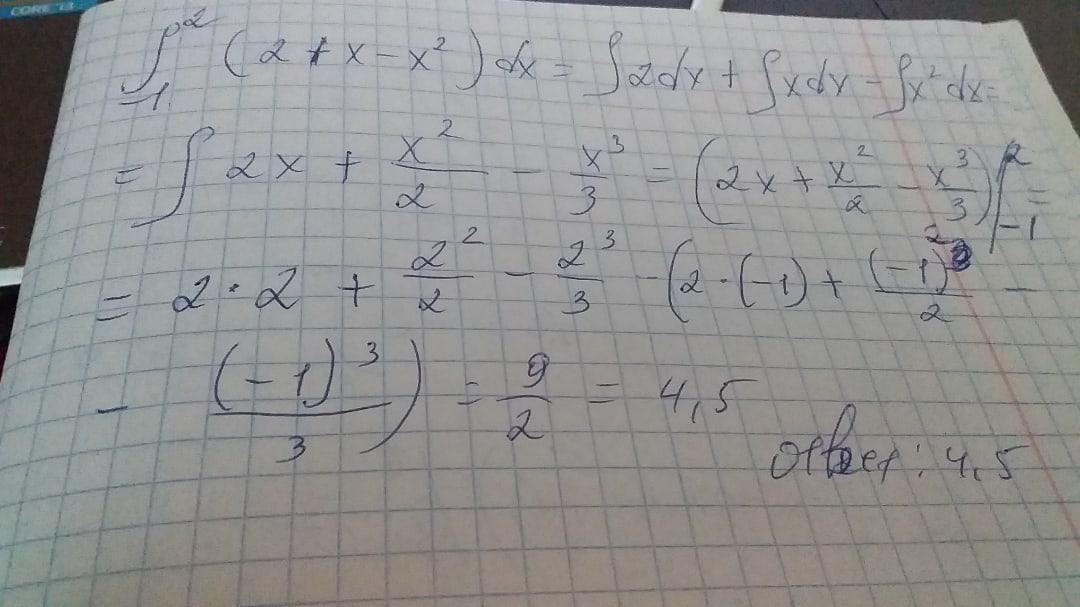 CORE i3
∫₋₁² (2 + x - x²) dx = ∫2dx + ∫xdx - ∫x²dx =
= ∫ 2x + x²/2 - x³/3 = (2x + x²/2 - x³/3)|₋₁² =
= 2·2 + 2²/2 - 2³/3 - (2·(-1) + (-1)²/2 -
- (-1)³/3) = 9/2 = 4,5
Ответ: 4,5